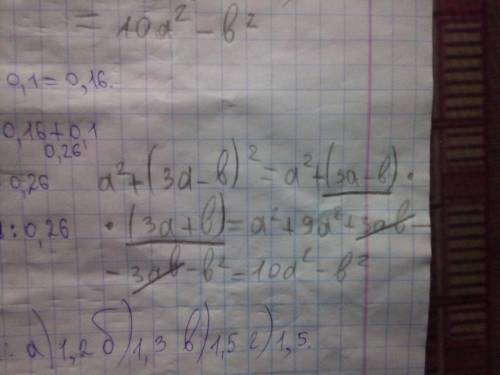 = 10a² - b²
0,1 = 0,16.
0,16 + 0,1
0,26
0,26
: 0,26
a² + (3a - b)² = a² + (3a - b) ·
· (3a + b) = a² + 9a² + 3ab -
- 3ab - b² = 10a² - b²
а) 1,2 б) 1,3 в) 1,5 г) 1,5.